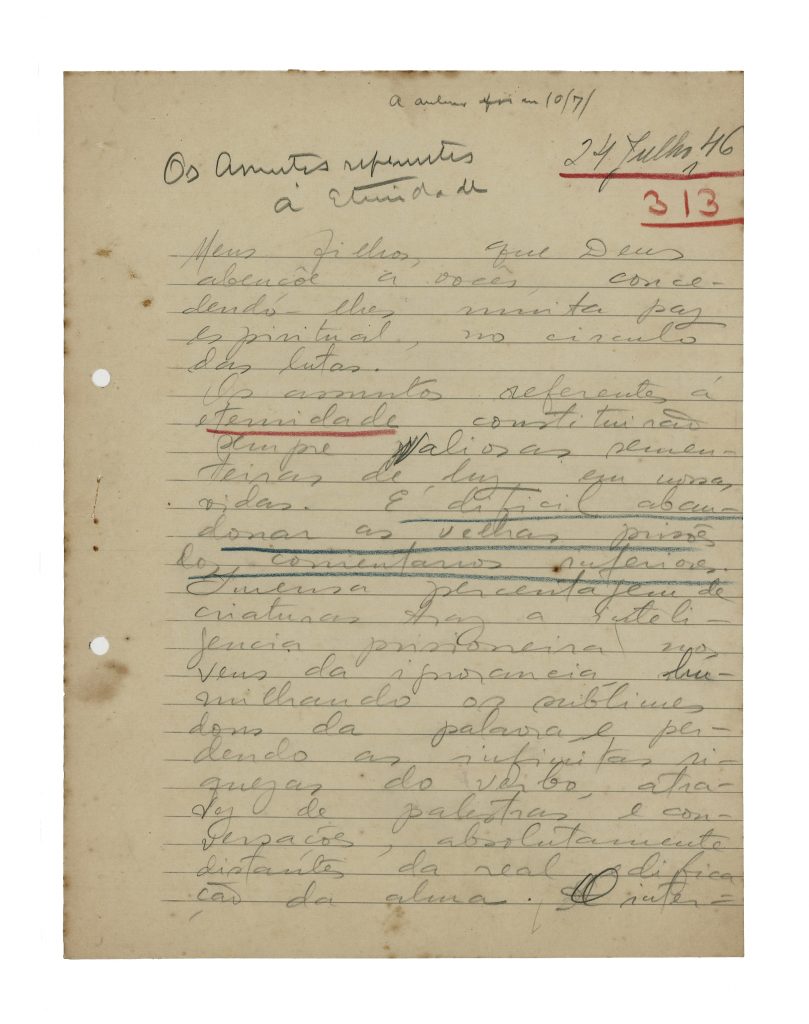 A anterior foi em 10/7/
24 Julho, 46
Os Assuntos referentes
à Eternidade
313
Meus filhos, que Deus
abençôe à vocês, conce-
dendo-lhes muita paz
espiritual, no circulo
das lutas.
Os assuntos referentes á
eternidade constituirão
sempre valiosas semen-
teiras de luz, em nossas
vidas. É dificil aban-
donar as velhas prisões
dos comentarios inferiores.
Imensa percentagem de
criaturas traz a inteli-
gencia prisioneira nos
veus da ignorancia, hu-
milhando os sublimes
dons da palavra e per-
dendo as infinitas ri-
quezas do verbo, atra-
vez de palestras e con-
versações, absolutamente
distantes da real edifica
ção da alma. O inter-